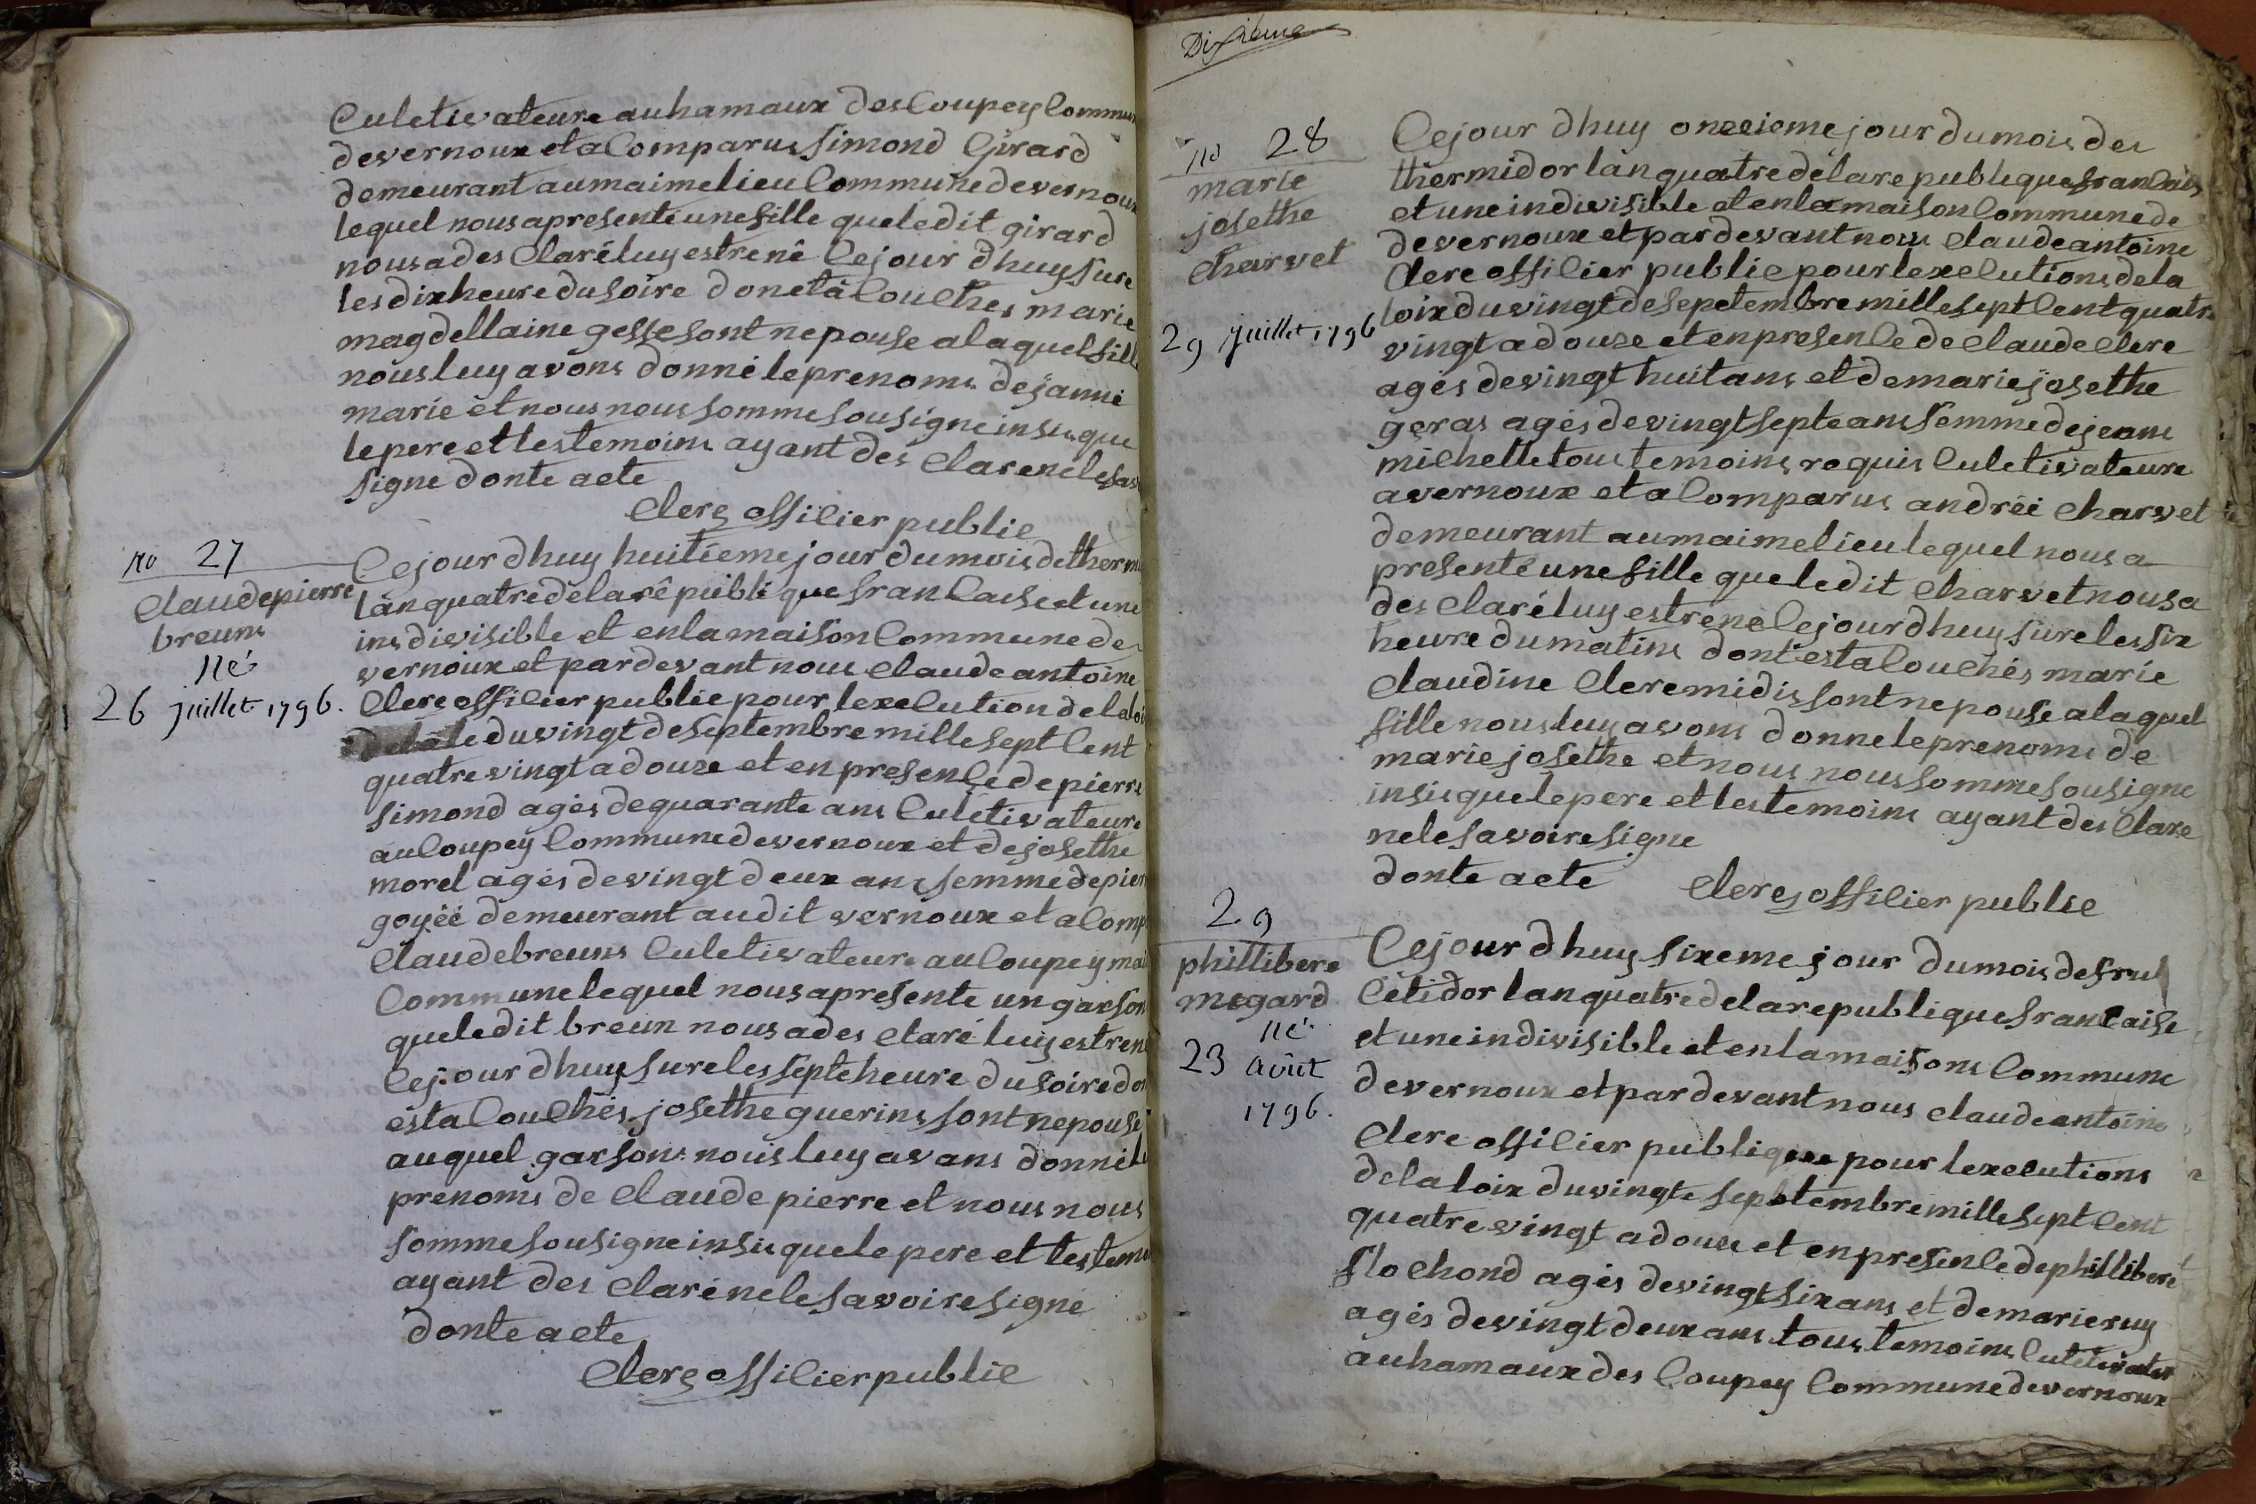 Culetivateure au hamaux des Coupey Commun
de vernoux et a Comparus Simond Girard
demeurant au maime lieu Commune de vernoux
lequel nous a presenté une fille que le dit girard
nous a des Claré luy estre né Ce jour dhuy sure
les dix heure du soire donet à Couches marie
magdellaine gesse sont nepouse a laquel fille
nous luy avons donné le prenoms de janne
marie et nous nous somme sousigné insis que
le pere et les temoins ayant des Clare ne le sav
signe donte acte
Clerc officier public
no 27
Claude pierre
breuns
né
26 juillet 1796.
Ce jour dhuy huitieme jour du mois de therm
lan quatre de la republique francaise et une
indivisible et en la maison Commune de
vernoux et par devant nous Claude antoine
Clerc officier public pour lexecution de la loi
du vingt de septembre mille sept Cent
quatre vingt a douze et en presence de pierre
Simond agés de quarante ans Culetivateure
au Coupey Commune de vernoux et de josethe
morel agés de vingt deux ans femme de pier
goyéé demeurant au dit vernoux et a Comp
Claude breuns Culetivateure au Coupey ma
Commune lequel nous a presente un garson
que le dit breun nous a des Claré luy estre né
Ce jour dhuy sure les septe heure du soire don
est a Couchés josethe guerins sont nepouse
au quel garsons nous luy avans donné le
prenoms de Claude pierre et nous nous
somme sousigne insis que le pere et les temo
ayant des Claré ne le savoire signé
donte acte
Clerc officier public
Dixième
no 28
marie
josethe
Charvet
29 juillet 1796
Ce jour dhuy onzeieme jour du mois de
thermidor lan quatre de la republique francais
et une indivisible et en la maison Commune de
de vernoux et par devant nous Claude antoine
Clerc officier public pour lexecutions de la
loix du vingt de sepetembre mille sept Cent quatre
vingt a douze et en presence de Claude Clerc
agés de vingt huit ans et de marie josethe
geras agés de vingt septe ans femme de jeans
michelle tous temoins requis Culetivateure
a vernoux et a Comparus andréé Charvet
demeurant au maime lieu lequel nous a
presenté une fille que le dit Charvet nous a
des Claré luy estre né Ce jour dhuy sure les six
heure du matins dont est a Couchés marie
Claudine Clermidis sont nepouse a laquel
fille nous luy avons donne le prenoms de
marie josethe et nous nous somme sousigne
insis que le pere et les temoins ayant des Clare
ne le savoire signe
donte acte Clerc officier public
29
phillibere
megard
né
23 août
1796.
Ce jour dhuy sixeme jour du mois de fruc
Cetidor lan quatre de la republique francaise
et une indivisible et en la maisons Commune
de vernoux et par devant nous Claude antoine
Clere officier publique pour lexecutions
de la loix du vingte septembre mille sept Cent
quatre vingt a douze et en presence de phillibere
flochond agés de vingt six ans et de marie ruy
agés de vingt deux ans tous temoins Culetivater
au hamaux des Coupey Commune de vernoux